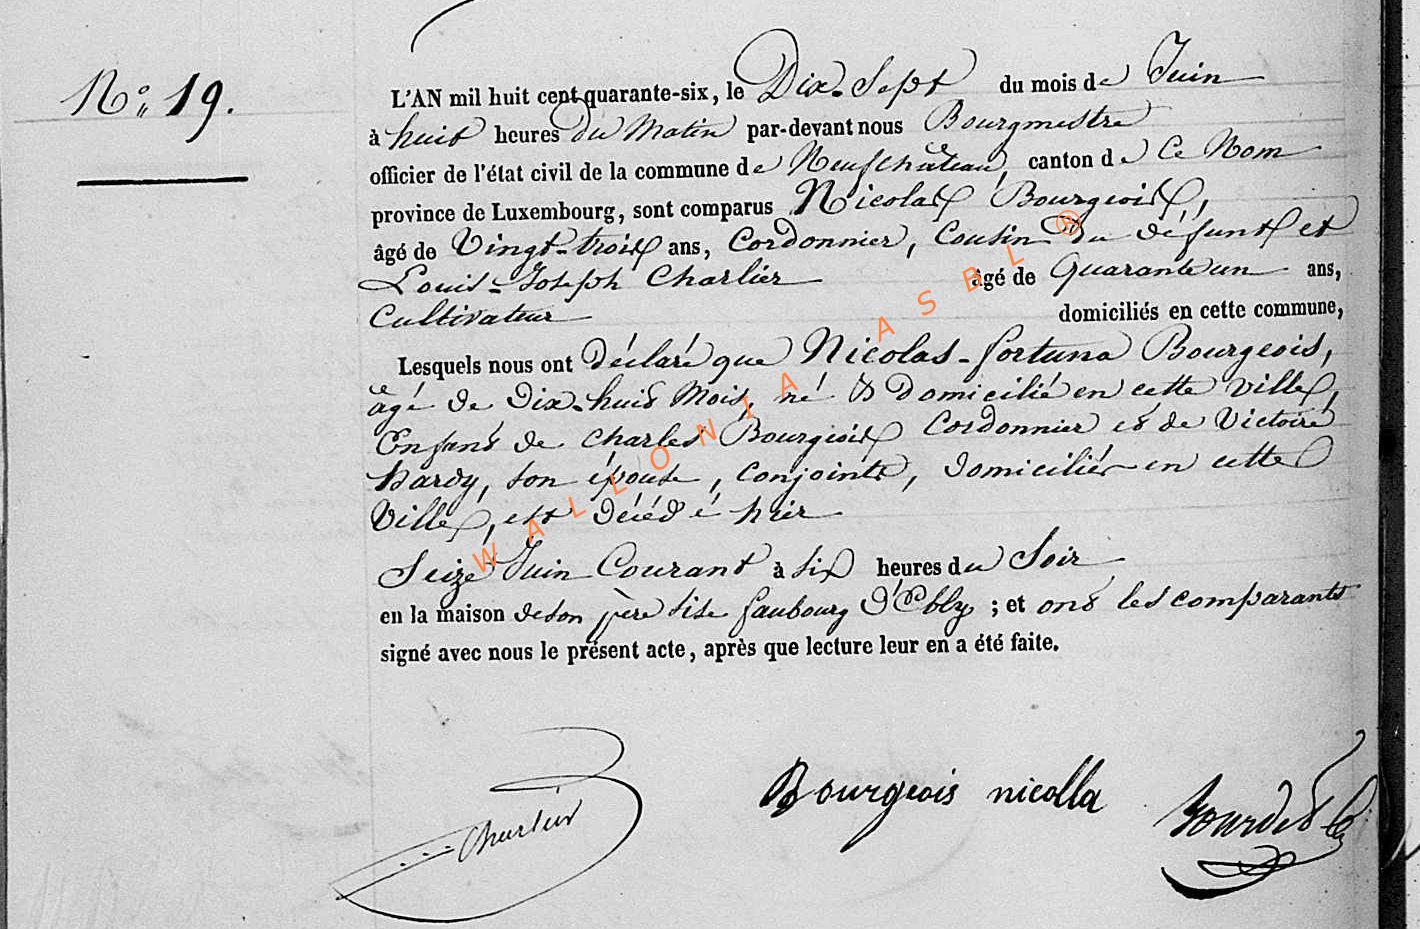 N° 19.
L'AN mil huit cent quarante-six, le Dix-Sept du mois de Juin
à huit heures du Matin par-devant nous Bourgmestre
officier de l'état civil de la commune de Neufchâteau, canton de Ce Nom
province de Luxembourg, sont comparus Nicolas Bourgeois,
âgé de Vingt-trois ans, Cordonnier, Cousin du défunt et
Louis-Joseph Charlier âgé de Quarante un ans,
Cultivateur domiciliés en cette commune,
Lesquels nous ont déclaré que Nicolas-fortuna Bourgeois,
âgé de Dix-huit Mois, né & Domicilié en cette ville,
Enfant de Charles Bourgeois Cordonnier et de Victoire
Hardy, son épouse, conjoints, domiciliés en cette
Ville, est décédé hier
Seize Juin Courant à six heures du Soir
en la maison de son père sise faubourg d'Ebly ; et ont les comparants
signé avec nous le présent acte, après que lecture leur en a été faite.
Charlier Bourgeois nicolla
WALLONIA ASBL ®